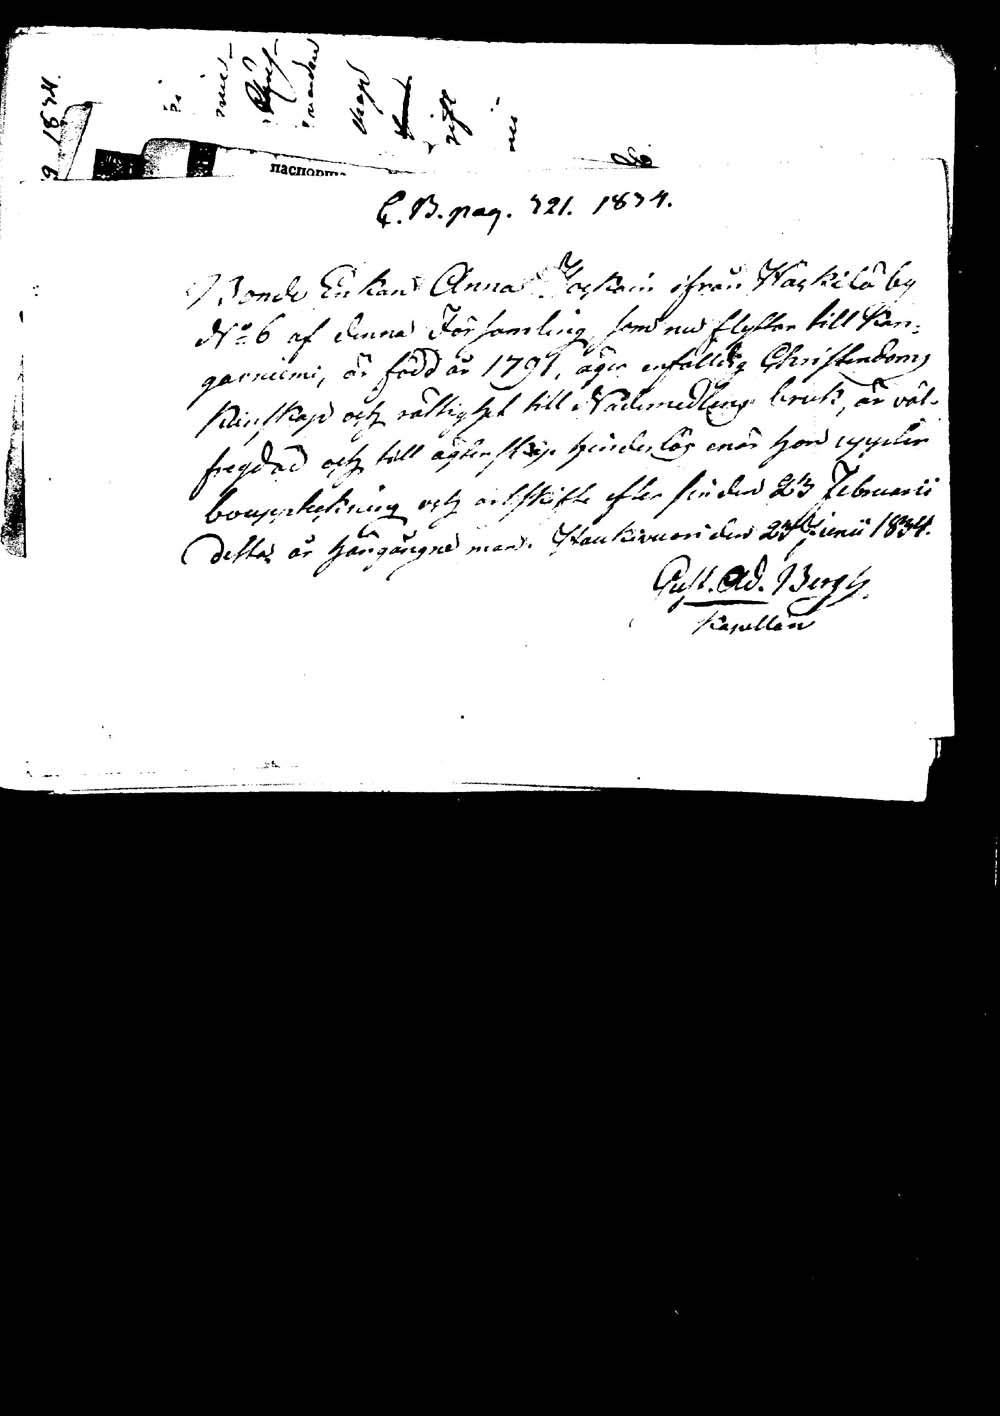 9 1834.
паспорта
C. B. pag. 321. 1834.
Bonde Enkan Anna ifrån Häckilä by
No 6 af denna Församling, som nu flyttar till Kan-
gasniemi, är född år 1791, äger enfaldig Christendoms
kunskap och rättighet till Nådemedlens bruk, är väl-
fregdad och till ägtenskap hinderlös enär hon uppvisar
bouppteckning och arfskifte efter sin den 23 Februarii
detta år hängångne man. Haukivuori den 23 Junii 1834.
Gust. Ad. Bergh.
Kapellan